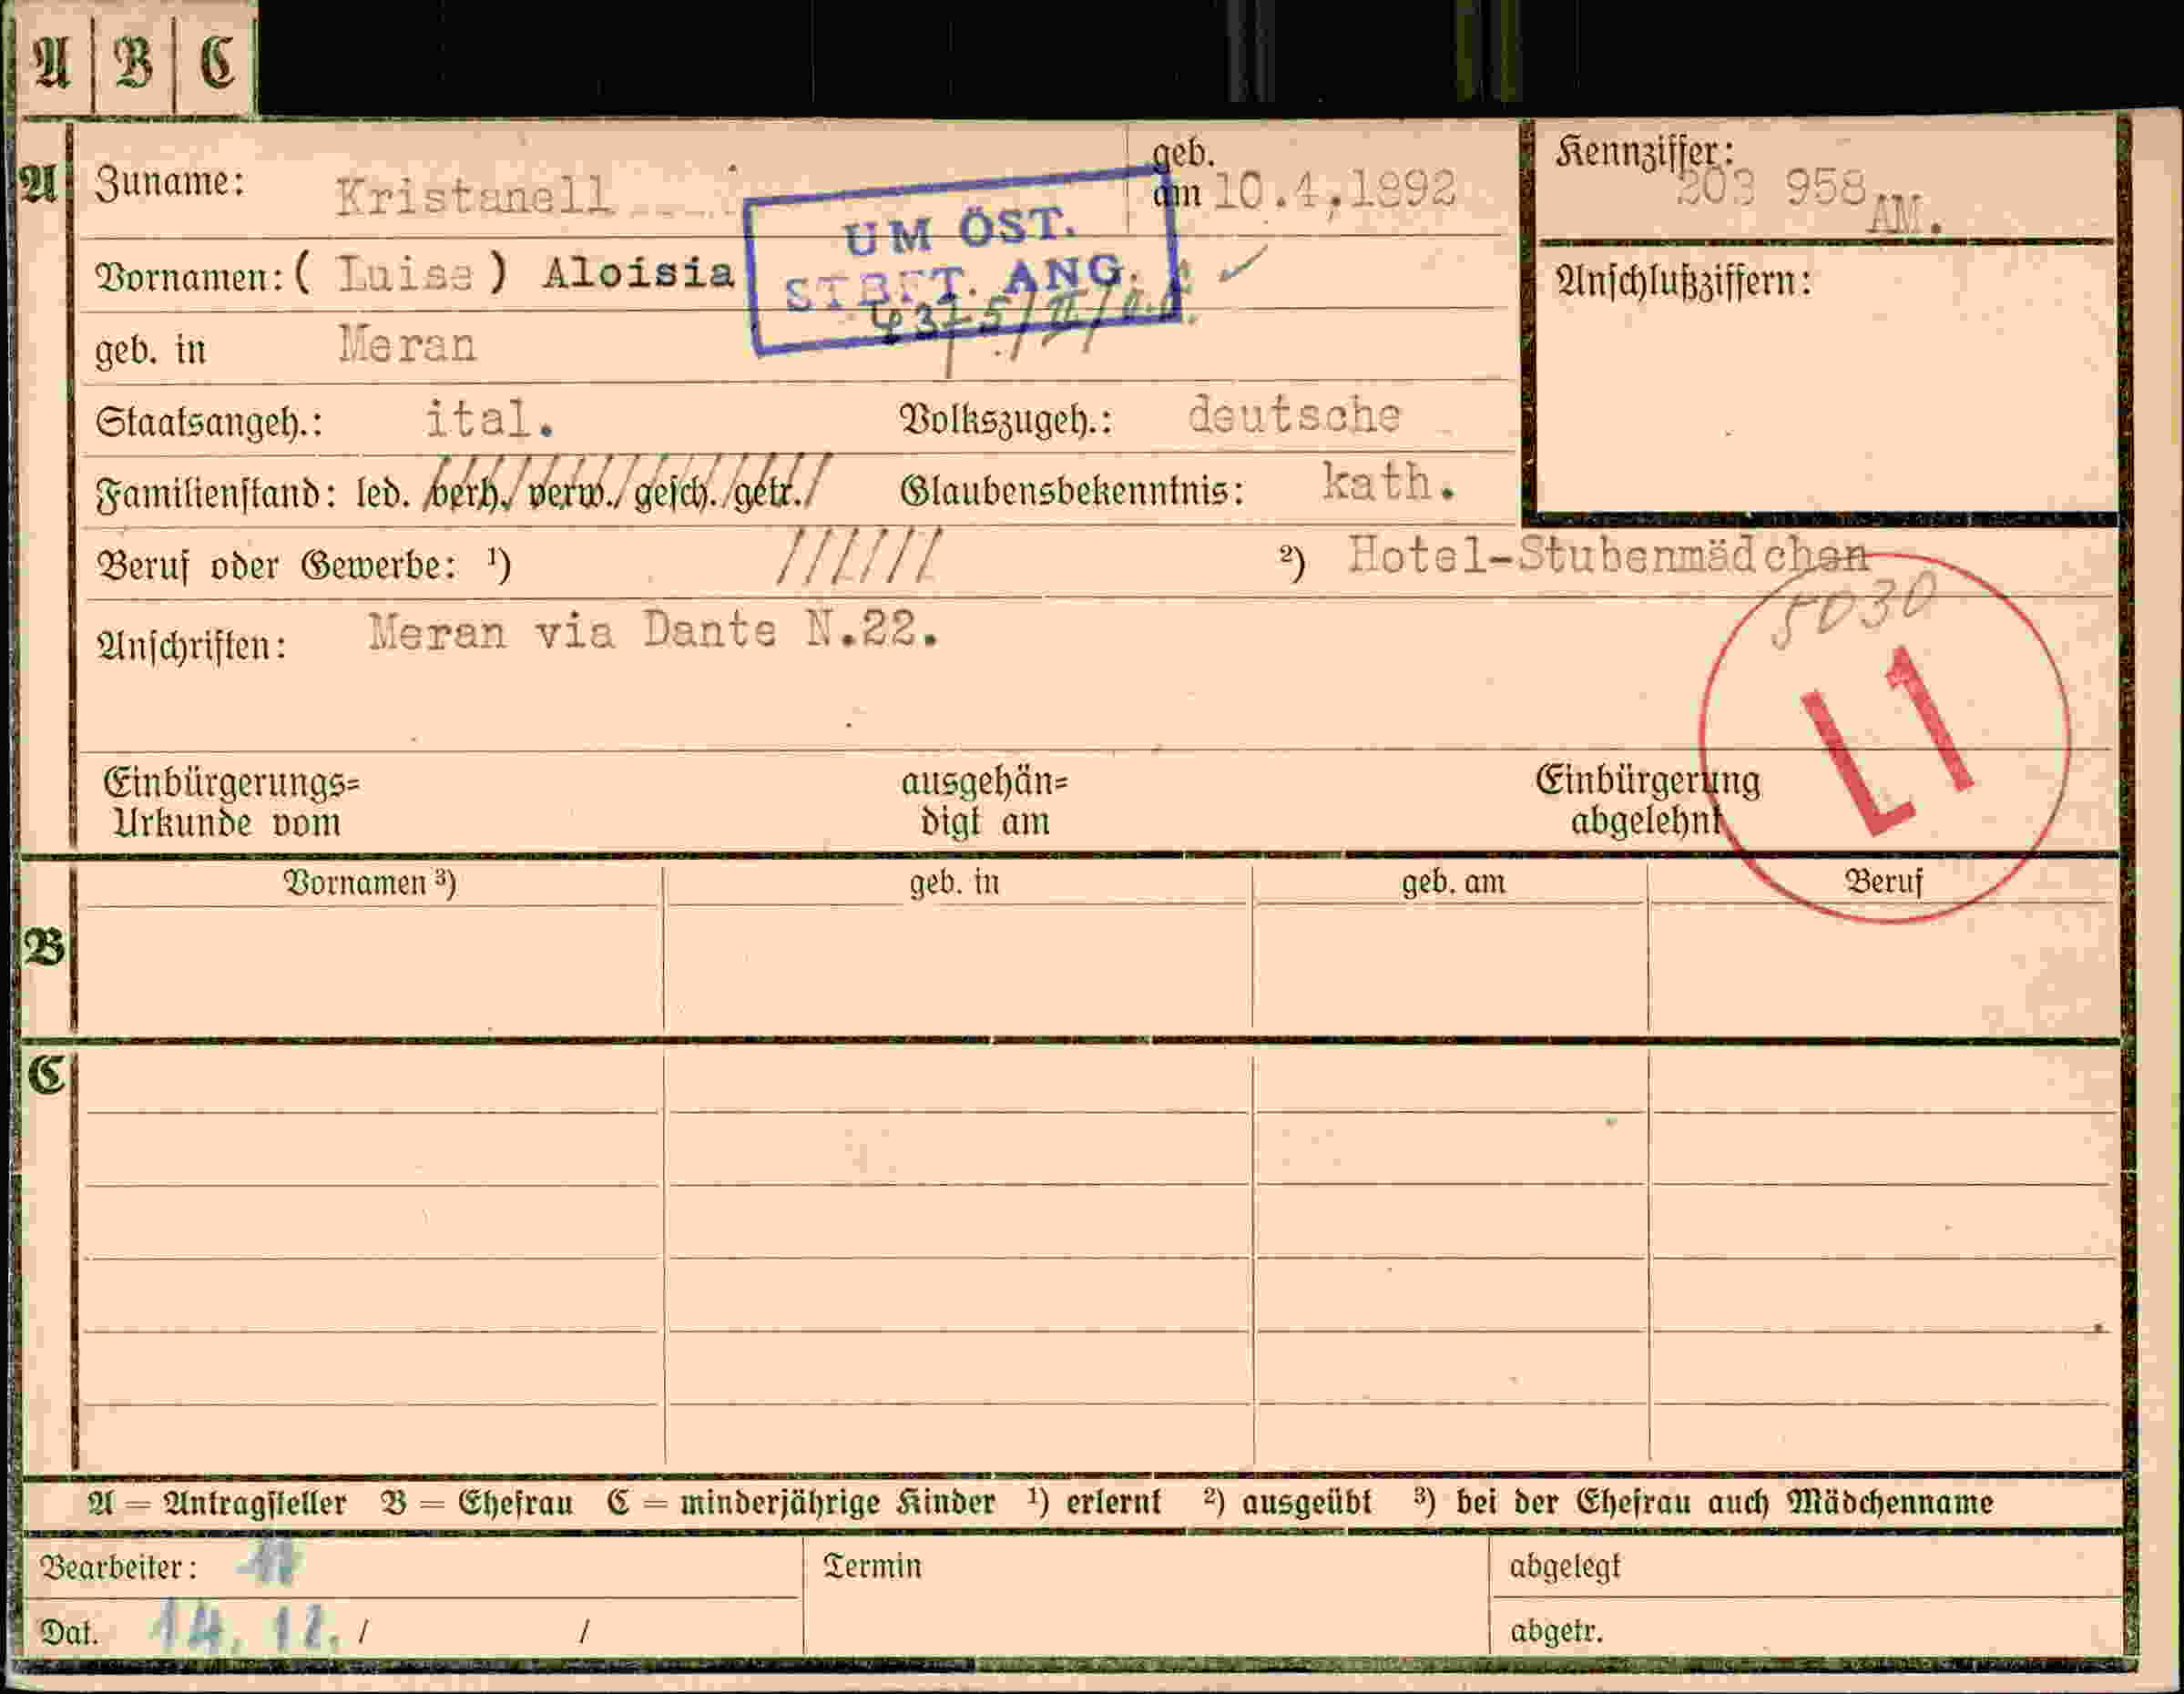 A B C
A Zuname: Kristanell geb. am 10.4,1892
Kennziffer: 203 958 AM.
UM ÖST.
STBFT. ANG.
Vornamen: ( Luise ) Aloisia
Anschlußziffern:
geb. in Meran
Staatsangeh.: ital. Volkszugeh.: deutsche
Familienstand: led. verh./ verw./ gesch./ getr./ Glaubensbekenntnis: kath.
Beruf oder Gewerbe: ¹) /////// ²) Hotel-Stubenmädchen
5030
Anschriften: Meran via Dante N.22.
L1
Einbürgerungs= ausgehän= Einbürgerung
Urkunde vom digt am abgelehnt
B Vornamen ³) geb. in geb. am Beruf
C
A = Antragsteller B = Ehefrau C = minderjährige Kinder ¹) erlernt ²) ausgeübt ³) bei der Ehefrau auch Mädchenname
Bearbeiter: Termin abgelegt
Dat. 14. 12. / / abgetr.